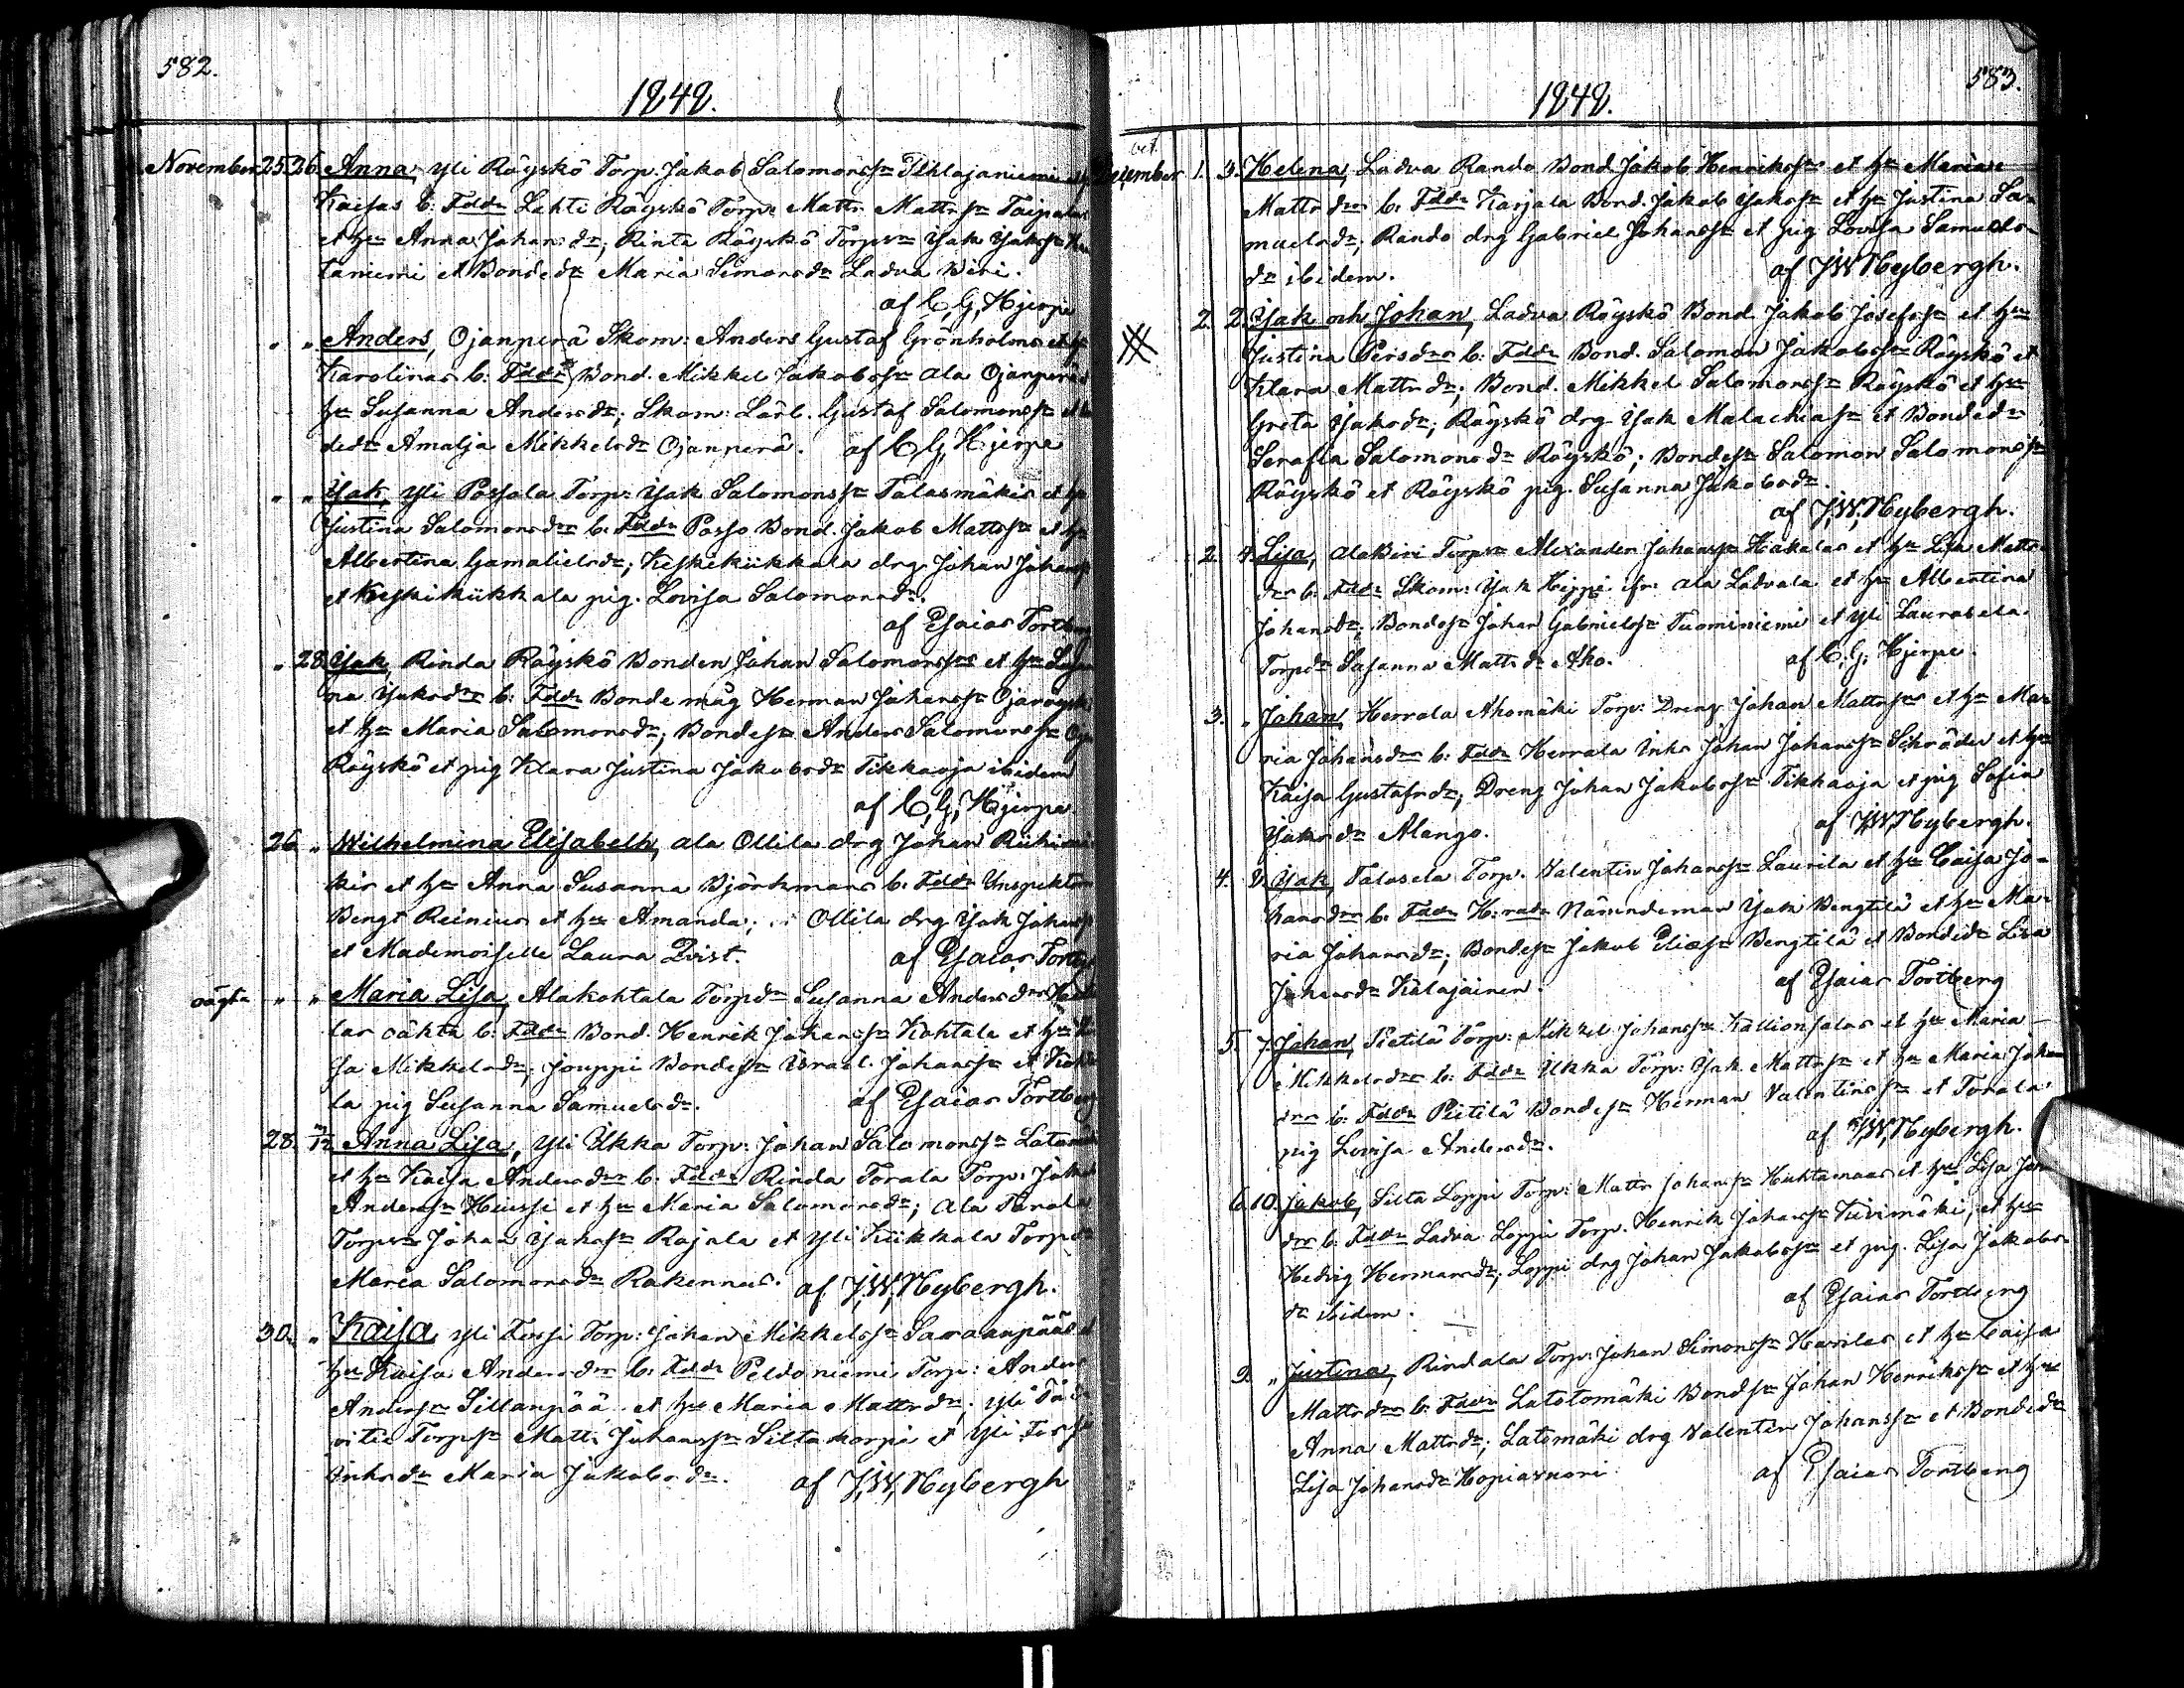 582.
1848.
November 25. 26. Anna, Yli Räyskö Torp: Jakob Salomonss:n Pihlajaniemi
Kaisas b: Fddr Lahti Räyskö Torp: Matts Mattss:n Taipalus
et h:u Anna Johans:dr; Rinta Räyskö Torps:n Isak Isakss:n
taniemi et Bonded:r Maria Simonsd:r Ladva Wiri.
af C, G, Hjerpe
" " Anders, Ojanperä Skom: Anders Gustaf Grönholms et h:u
Karolinas b: Fddr Bond. Mikkel Jakobss:n Ala Ojanperä
h:u Susanna Andersd:r; Skom: Lärl. Gustaf Salomonss:n et
ded:r Amalja Mikkelsd:r Ojanperä. af C G, Hjerpe
" " Isak, Yli Possola Torp: Isak Salomonss:n Talasmäkis et h:u
Justina Salomonsd:rs b: Fddr Posso Bond. Jakob Mattss:n et h:u
Albertina Gamalielsd:r; Keskikükkala drg Johan Johanss:n
et Keskikükkala pig. Lovisa Salomonsd:r.
af Esaias Tortberg
" 28. Isak, Rinda Räyskö Bonden Johan Salomonss:ns et h:u
na Isaksd:rs b: Fddr Bondemåg Herman Johanss:n Ojaräyskö
et h:u Maria Salomonsd:r; Bondes:n Anders Salomonss:n Oja
Räyskö et pig Klara Justina Jakobsd:r Tikkaoja ibidem
af C, G, Hjerpe
26 " Wilhelmina Elisabeth, Ala Ollila drg Johan Riihimä
kis et h:u Anna Susanna Björkmans b: Fddr Inspektor
Bengt Reinius et h:u Amanda; Ollila drg Isak Johanss:n
et Mademoiselle Laura Qvist. af Esaias Tortberg
oägta " " Maria Lisa, Alakohtala Torpd:r Susanna Andersd:rs
las oäkta b: Fddr Bond. Henrik Johanss:n Kohtala et h:u
sa Mikkelsd:r; Jouppi Bondes:n Israel Johanss:n et Kohta
la pig Susanna Samuelsd:r. af Esaias Tortberg
28. Anna Lisa, Yli Ukka Torp: Johan Salomonss:n
et h:u Kaisa Andersd:rs b: Fddr Rinda Torala Torp: Jakob
Anderss:n Huissi et h:u Maria Salomonsd:r; Ala Torala
Torps:n Johan Isakss:n Rajala et Yli Kükkala Torpd:r
Maria Salomonsd:r Rakennus. af J, W, Nybergh.
30. " Kaisa, Yli Fossi Torp: Johan Mikkelss:n Savaanpääs et
h:u Kaisa Andersd:rs b: Fddr Peldoniemi Torp: Anders
Anderss:n Sillanpää et h:u Maria Mattsd:r; Yli
vitie Torps:n Matts Johanss:n Siltakorpi et Yli Fossi
Inhsd:r Maria Jakobsd:r. af J, W, Nybergh
583.
1848.
December 1. 3. Helena, Ladva Rando Bond. Jakob Henrikss:ns et h:u Marias
Mattsd:rs b: Fddr Karjala Bond. Jakob Isakss:n et h:u Justina Sa-
muelsd:r; Rando drg Gabriel Johanss:n et pig Lovisa Samuels-
d:r ibidem. af J W Nybergh.
2. 2. Isak och Johan, Ladva Räyskö Bond. Jakob Josefss:n et h:u
Justina Persd:rs b: Fddr Bond. Salomon Jakobss:n Räyskö et
Klara Mattsd:r; Bond. Mikkel Salomonss:n Räyskö et h:u
Greta Isaksd:r; Räyskö drg. Isak Malachias:n et Bonded:r
Serafia Salomonsd:r Räyskö; Bondes:n Salomon Salomonss:n
Räyskö et Räyskö pig. Susanna Jakobsd:r.
af J, W, Nybergh.
2. 4. Lisa, Ala Wiri Torps:n Alexander Johanss:n Hakalas et h:u Lisa Matts-
d:rs b: Fddr Skom: Isak Hippi fr: Ala Ladvala et h:u Albertina
Johansd:r; Bondes:n Johan Gabrielss:n Tuominiemi et Yli Laurosela
Torpd:r Susanna Mattsd:r Aho. af C, G, Hjerpe.
3. " Johan, Herrala Ahomäki Torp: Dreng Johan Mattss:ns et h:u Ma-
ria Johansd:rs b: Fddr Herrala Inhs Johan Johanss:n Schröder et h:u
Kaisa Gustafsd:r; Dreng Johan Jakobss:n Tikkaoja et pig Sofia
Isaksd:r Alango. af J, W, Nybergh.
4. 8. Isak, Talosela Torp. Valentin Johanss:n Laurila et h:u Caisa Jo-
hansd:rs b: Fddr H:rads Nämndeman Isak Bengtilä et h:u Ma-
ria Johansd:r; Bondes:n Jakob Eliass:n Bengtilä et Bonded:r Lisa
Johansd:r Kalajainen. af Esaias Tortberg
5. 7. Johan, Pietilä Torp: Mikkel Johanss:n Kallionsalos et h:u Maria
Mikkelsd:rs b: Fddr Ukka Torp: Isak Mattss:n et h:u Maria Johans
d:rs b: Fddr Pietilä Bondes:n Herman Valentinss:n et Torala
pig Lovisa Andersd:r. af J, W, Nybergh.
6. 10. Jakob, Silta Loppi Torp: Matts Johanss:n Huhtamaas et h:u Lisa Johans
d:rs b: Fddr Ladva Loppi Torp. Henrik Johanss:n Kivimäki, et h:u
Hedvig Hermansd:r; Loppi drg Johan Jakobss:n et pig. Lisa Jakobs-
d:r ibidem. af Esaias Tortberg
9. " Justina, Rindala Torp: Johan Simonss:n Harilas et h:u Caisa
Mattsd:rs b: Fddr Latotomäki Bonds:n Johan Henrikss:n et h:u
Anna Mattsd:r; Latomäki drg Valentin Johanss:n et Bonded:r
Lisa Johansd:r Kopiavuori af Esaias Tortberg